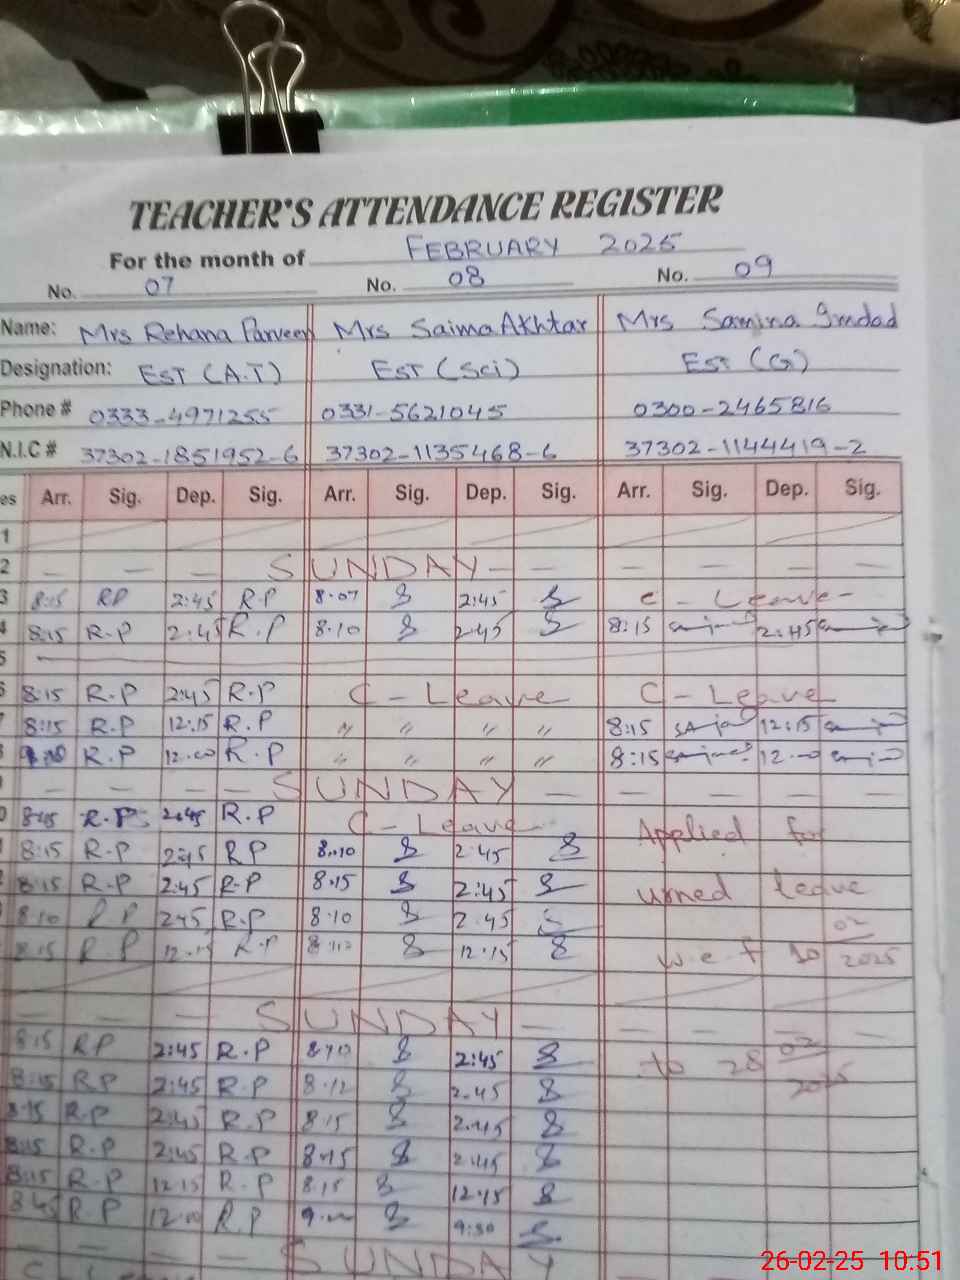 TEACHER'S ATTENDANCE REGISTER
For the month of FEBRUARY 2025
No. 07 No. 08 No. 09
Name: Mrs Rehana Parveen Mrs Saima Akhtar Mrs Samina Imdad
Designation: EST (A.T) EST (Sci) EST (G)
Phone # 0333-4971255 0331-5621045 0300-2465816
N.I.C # 37302-1851952-6 37302-1135468-6 37302-1144419-2
es Arr. Sig. Dep. Sig. Arr. Sig. Dep. Sig. Arr. Sig. Dep. Sig.
1
2 SUNDAY
3 8:15 RP 2:45 R.P 8.07 2:45 C-Leave
4 8:15 R.P 2.45 R.P 8.10 2.45 8:15 2:45
5
8:15 R.P 2:45 R-P C-Leave C-Leave
8:15 R.P 12.15 R.P 〃 〃 〃 〃 8:15 12:15
R.P 12.00 R.P 〃 〃 〃 〃 8:15 12.00
SUNDAY
8:15 R.P 2:45 R.P C-Leave Applied for
8:15 R.P 2:45 RP 8.10 2.45
8:15 R.P 2:45 R-P 8.15 2:45 leave
8:10 R P 2:45 R.P 8.10 2.45 02
8:15 R.P 12.15 R.P 12.15 w.e.f 10 2025
SUNDAY
8:15 RP 2:45 R.P 8.10 2:45 to 28 02
8:15 RP 2:45 R.P 8.12 2.45 2025
8:15 R.P 2:45 R.P 8.15 2.45
8:15 R.P 2:45 R.P 8.15 2:45
8:15 R.P 12:15 R.P 8.15 12.15
8:45 R.P 12.00 R.P 9.00 9:30
SUNDAY
26-02-25 10:51